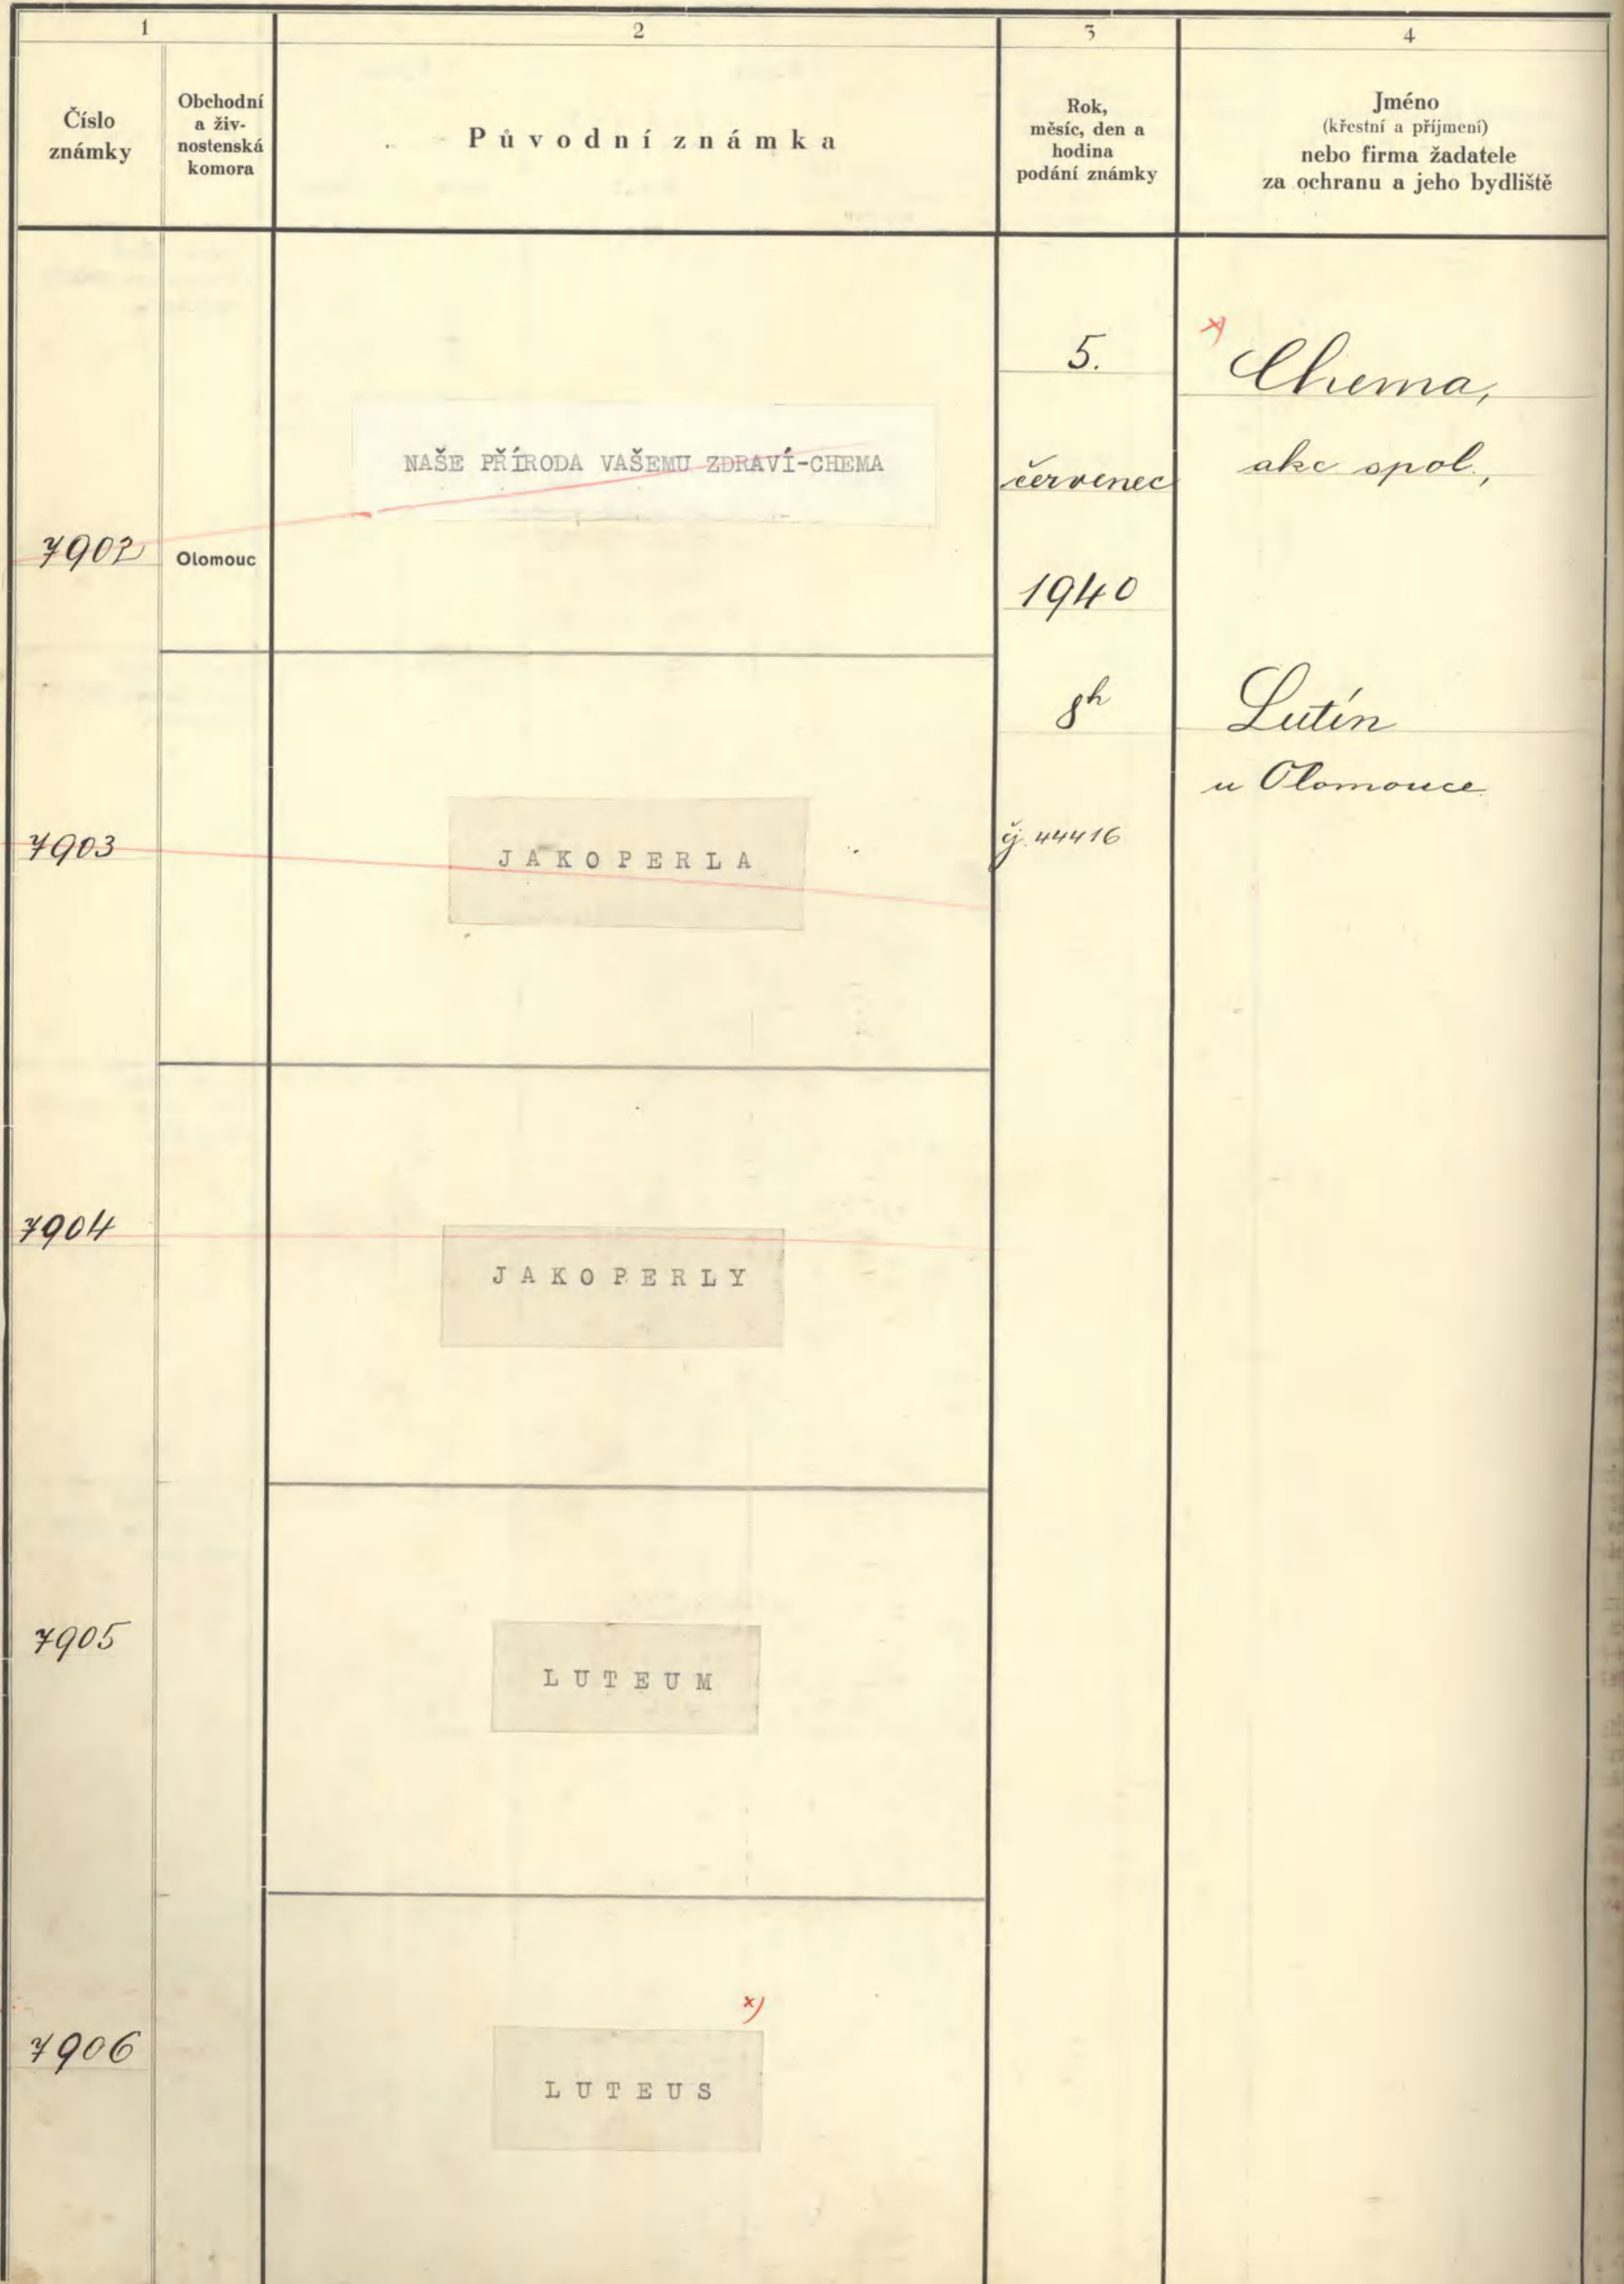 1
2
3
4
Číslo
známky
Obchodní
a živ-
nostenská
komora
Původní známka
Rok,
měsíc, den a
hodina
podání známky
Jméno
(křestní a příjmení)
nebo firma žadatele
za ochranu a jeho bydliště
7902
Olomouc
NAŠE PŘÍRODA VAŠEMU ZDRAVÍ-CHEMA
5.
červenec
1940
8h
čj. 44416
x)
Chema,
akc spol.,
Lutín
u Olomouce
7903
JAKOPERLA
7904
JAKOPERLY
7905
LUTEUM
7906
x)
LUTEUS